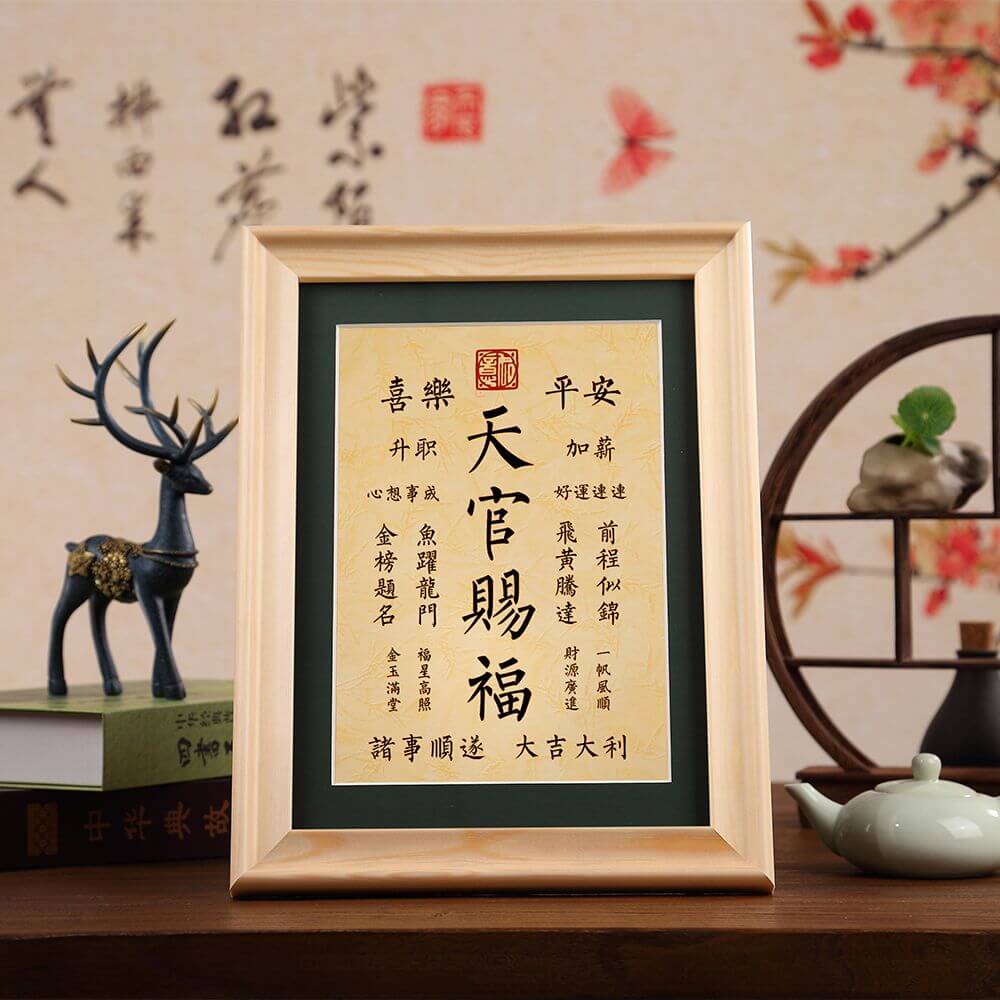 喜樂
平安
天官賜福
升职
加薪
心想事成
好運連連
前程似錦
飛黃騰達
魚躍龍門
金榜題名
一帆風順
財源廣進
福星高照
金玉滿堂
諸事順遂 大吉大利
中华经典
四書
中华典故